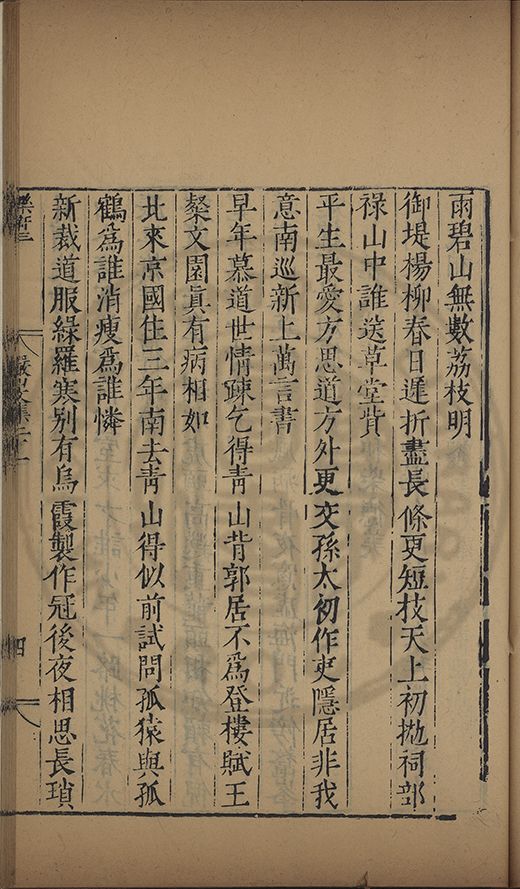 雨碧山無數荔枝明
御堤楊柳春日遲折盡長條更短枝天上初拋祠部
祿山中誰送草堂貲
平生最愛方思道方外更交孫太初作吏隱居非我
意南巡新上萬言書
早年慕道世情疎乞得青山背郭居不爲登樓賦王
粲文園眞有病相如
北來京國住三年南去青山得似前試問孤猿與孤
鶴爲誰消瘦爲誰憐
新裁道服綠羅寒别有烏霞製作冠後夜相思長瑣
四